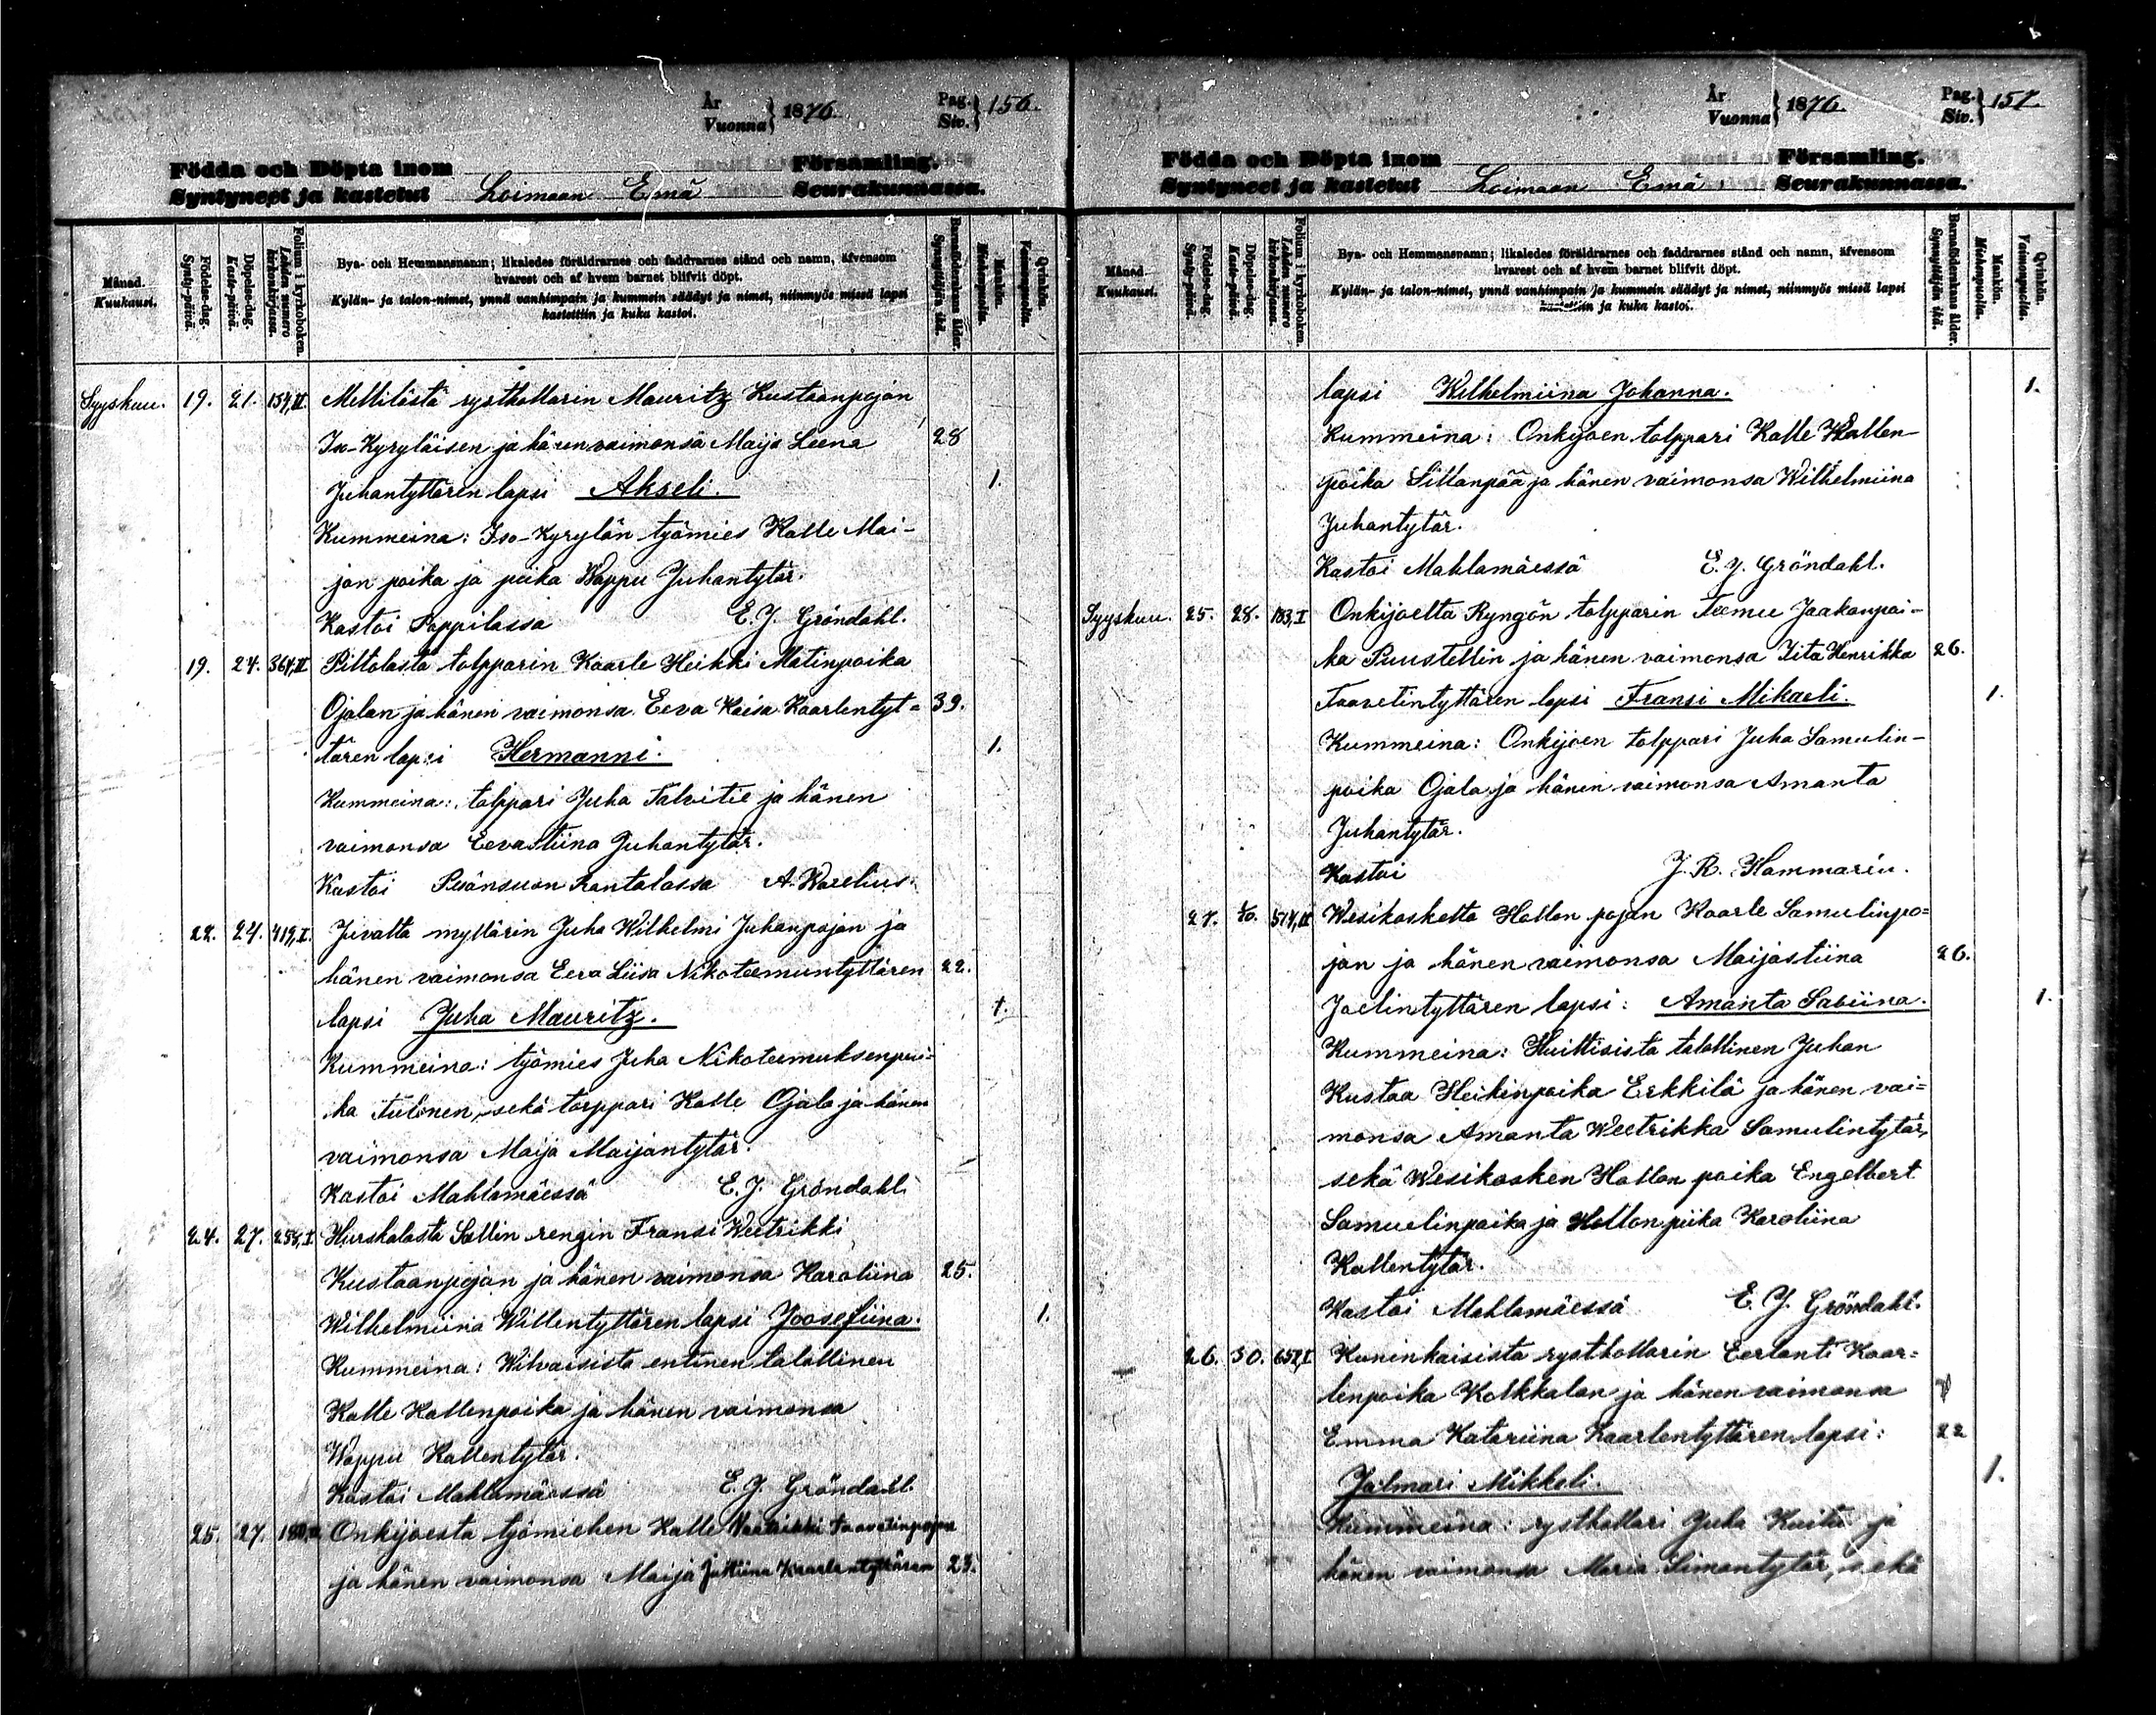 År
Vuonna } 1876.
Pag.
Siv. } 156.
Födda och Döpta inom Församling.
Syntyneet ja kastetut Loimaan Emä Seurakunnassa.
Månad. Kuukausi.
Födelse-dag. Synty-päivä.
Döpelse-dag. Kaste-päivä.
Folium i kyrkoboken. Lehden numero kirkonkirjassa.
Bya- och Hemmansnamn; likaledes föräldrarnes och faddrarnes stånd och namn, äfvensom
hvarest och af hvem barnet blifvit döpt.
Kylän- ja talon-nimet, ynnä vanhimpain ja kummein säädyt ja nimet, niinmyös missä lapsi
kastettiin ja kuka kastoi.
Barnaföderskans ålder. Synnyttäjän ikä.
Mankön. Miehenpuolia.
Qvinkön. Vaimonpuolia.
Syyskuu. 19. 21. 154,II. Mellilästä rysthollarin Mauritz Kustaanpojan
Iso-Kyryläisen ja hänen vaimonsa Maija Leena 28
Juhantyttären lapsi Akseli. 1.
Kummeina: Iso-Kyrylän työmies Kalle Mai-
jan poika ja piika Wappu Juhantytär.
Kastoi Pappilassa E. J. Gröndahl.
19. 24. 364,II Piltolasta tolpparin Kaarle Heikki Matinpoika
Ojalan ja hänen vaimonsa Eeva Kaisa Kaarlentyt- 39.
tären lapsi Hermanni. 1.
Kummeina: tolppari Juha Talvitie ja hänen
vaimonsa Eevastiina Juhantytär.
Kastoi Peränsuon Rantalassa A. Warelius.
22. 24. 419,I. Juvalta myllärin Juha Wilhelmi Juhanpojan ja
hänen vaimonsa Eeva Liisa Nikoteemuntyttären 22.
lapsi Juha Mauritz. 1.
Kummeina: työmies Juha Nikoteemuksenpoi-
ka Tulonen, sekä torppari Kalle Ojala ja hänen
vaimonsa Maija Maijantytär.
Kastoi Mahlamäessä E. J. Gröndahl.
24. 27. 254,I. Hurskalasta Sallin rengin Fransi Weetrikki
Kustaanpojan ja hänen vaimonsa Karoliina 25.
Wilhelmiina Willentyttären lapsi Joosefiina. 1.
Kummeina: Wilvaisista entinen talollinen
Kalle Kallenpoika ja hänen vaimonsa
Wappu Kallentytär.
Kastoi Mahlamäessä E. J. Gröndahl.
25. 27. Onkijoesta työmiehen Kalle Weetrikki Taavetinpojan
ja hänen vaimonsa Maija Justiina Kaarlentyttären 23.
År
Vuonna } 1876.
Pag.
Siv. } 157.
Födda och Döpta inom Församling.
Syntyneet ja kastetut Loimaan Emä Seurakunnassa.
Månad. Kuukausi.
Födelse-dag. Synty-päivä.
Döpelse-dag. Kaste-päivä.
Folium i kyrkoboken. Lehden numero kirkonkirjassa.
Bya- och Hemmansnamn; likaledes föräldrarnes och faddrarnes stånd och namn, äfvensom
hvarest och af hvem barnet blifvit döpt.
Kylän- ja talon-nimet, ynnä vanhimpain ja kummein säädyt ja nimet, niinmyös missä lapsi
kastettiin ja kuka kastoi.
Barnaföderskans ålder. Synnyttäjän ikä.
Mankön. Miehenpuolia.
Qvinkön. Vaimonpuolia.
lapsi Wilhelmiina Johanna. 1.
Kummeina: Onkijoen tolppari Kalle Kallen-
poika Sillanpää ja hänen vaimonsa Wilhelmiina
Juhantytär.
Kastoi Mahlamäessä E. J. Gröndahl.
Syyskuu. 25. 28. 183,I Onkijoelta Ryngön tolpparin Teemu Jaakonpoi-
ka Puustellin ja hänen vaimonsa Iita Henrikka 26.
Taavetintyttären lapsi Fransi Mikaeli. 1.
Kummeina: Onkijoen tolppari Juha Samulin-
poika Ojala ja hänen vaimonsa Amanta
Juhantytär.
Kastoi J. R. Hammarén.
27. 1/10. 514,II Wesikoskelta Hollon pojan Kaarle Samulinpo-
jan ja hänen vaimonsa Maijastiina 26.
Joelintyttären lapsi: Amanta Sabiina. 1.
Kummeina: Huittisista talollinen Juhan
Kustaa Heikinpoika Erkkilä ja hänen vai-
monsa Amanta Weetrikka Samulintytär,
sekä Wesikosken Hollon poika Engelbert
Samuelinpoika ja Hollon piika Karoliina
Kallentytär.
Kastoi Mahlamäessä E. J. Gröndahl.
26. 30. 657,I Kuninkaisista rysthollarin Eerlanti Kaar-
linpoika Kolkkalan ja hänen vaimonsa
Emma Katariina Kaarlentyttären lapsi: 22
Jalmari Mikkeli. 1.
Kummeina: rysthollari Juha Kuitu ja
hänen vaimonsa Maria Simontytär, sekä